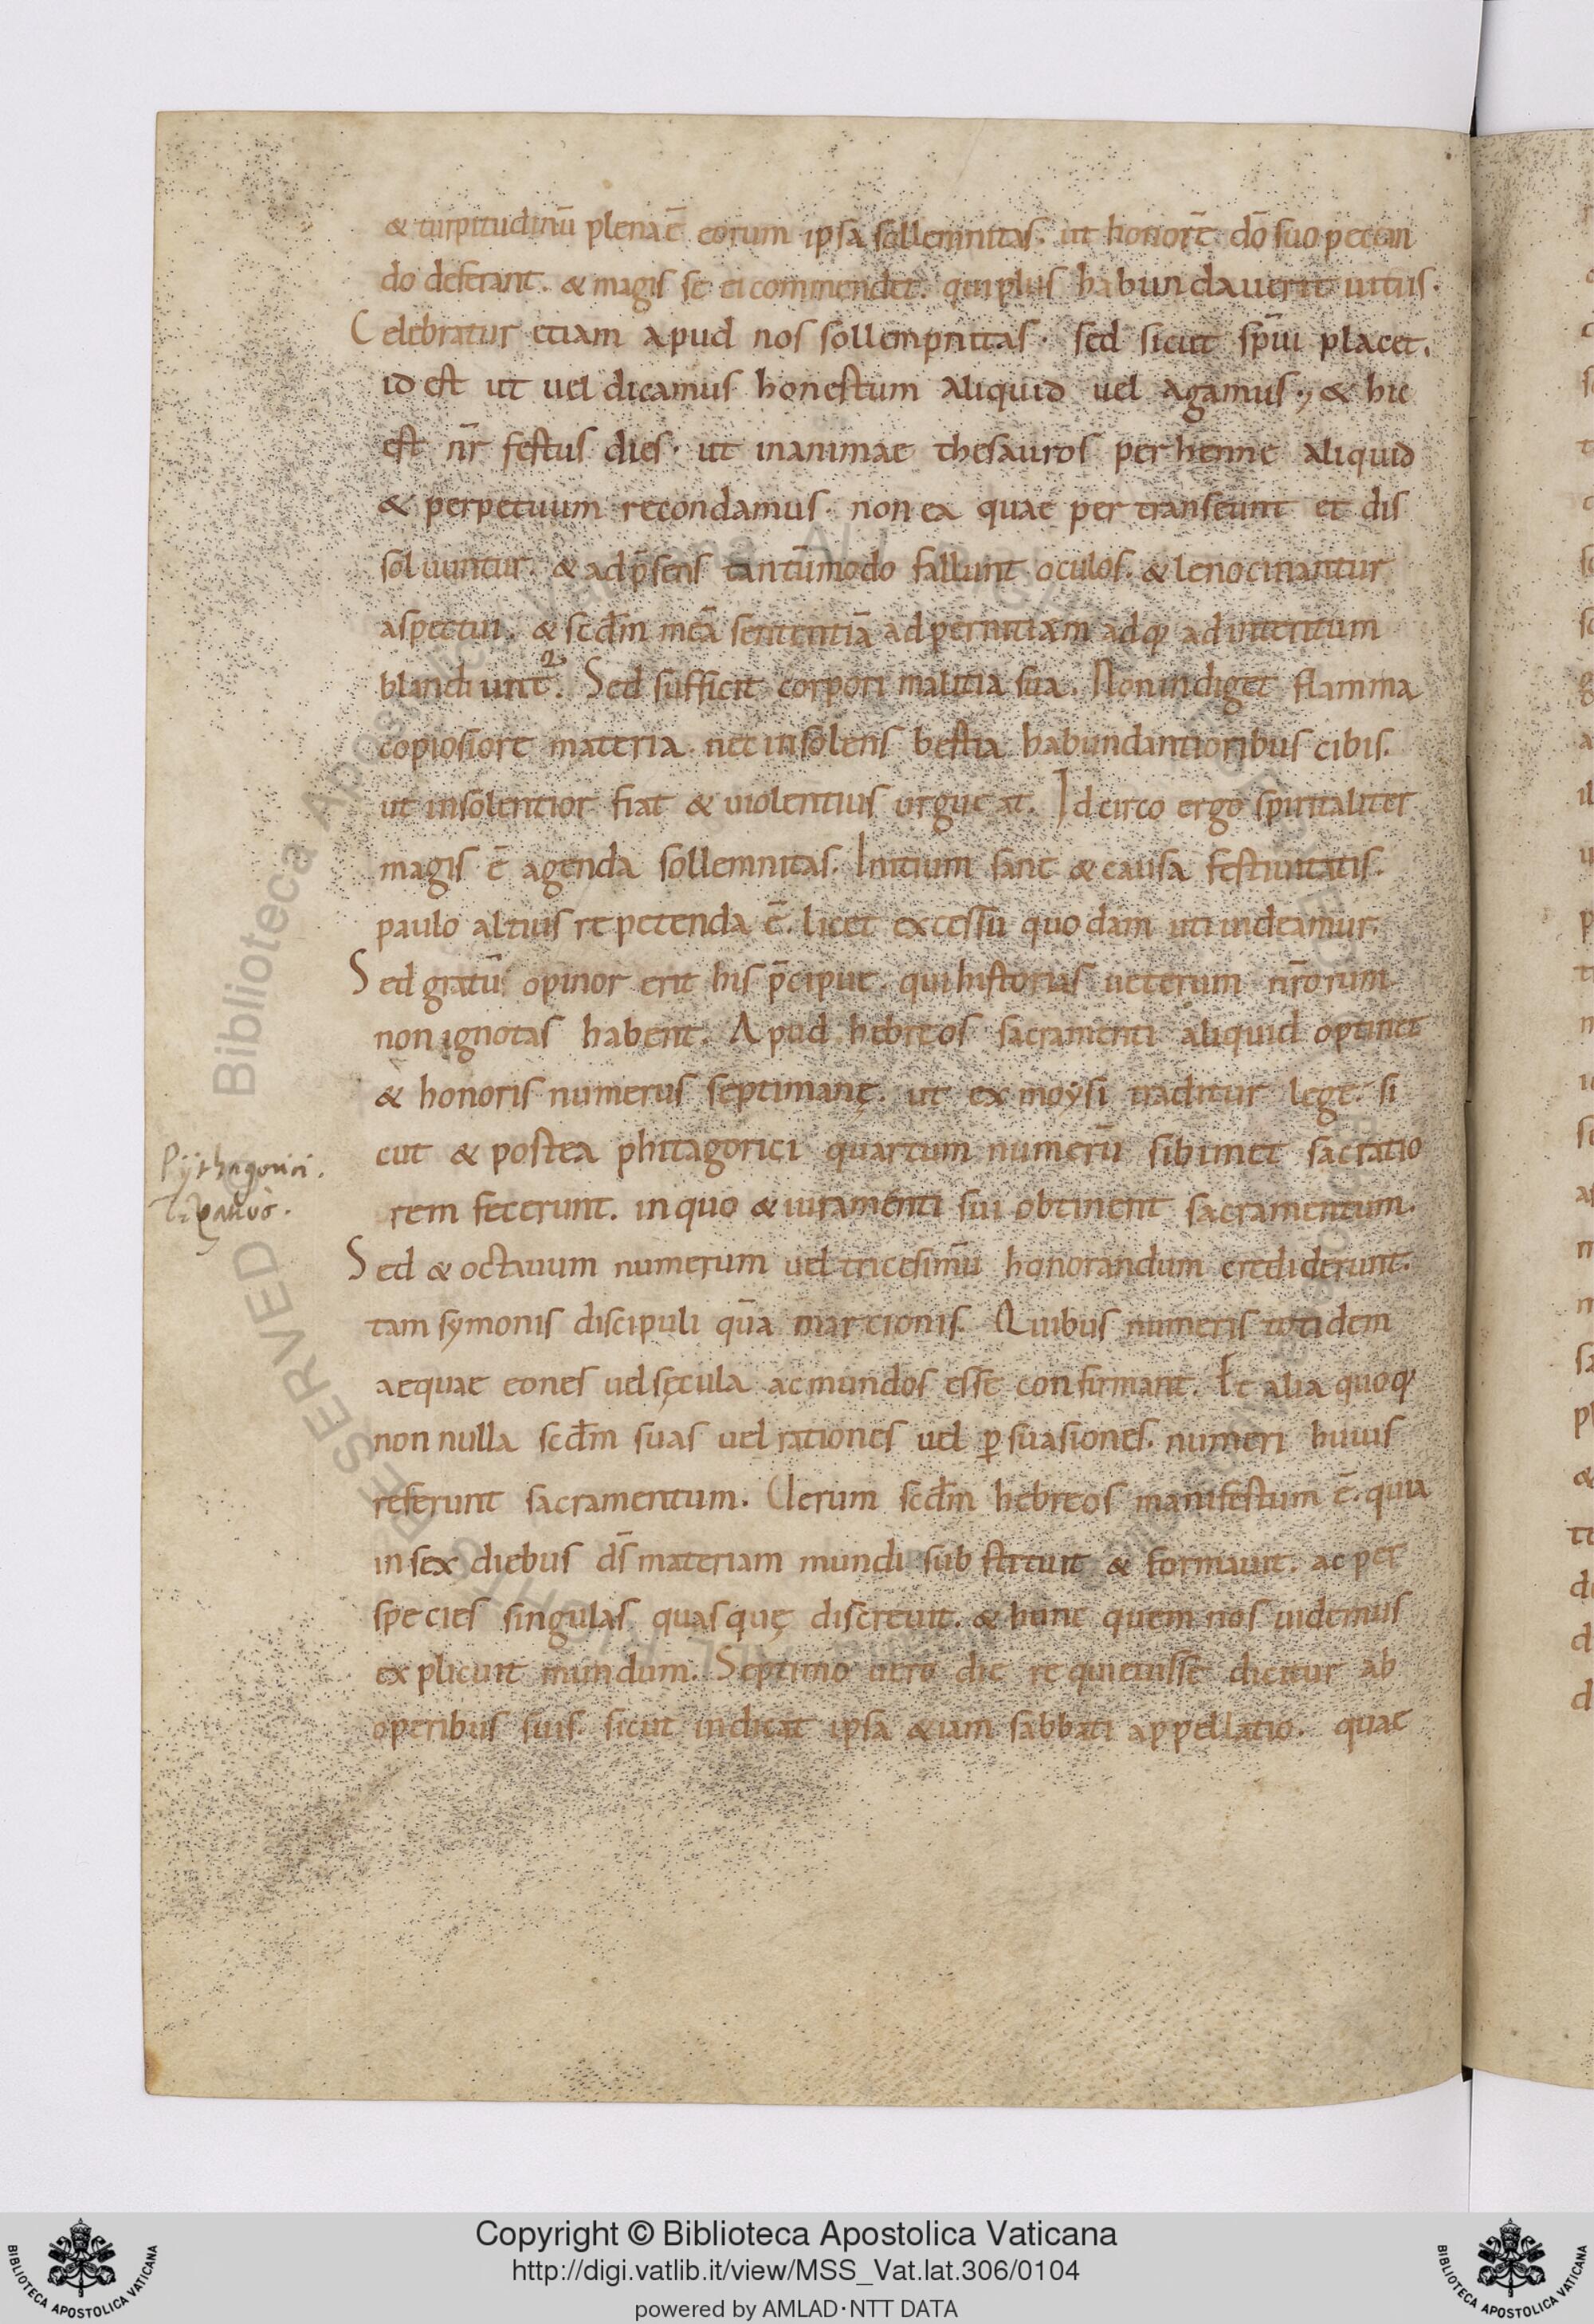 & turpitudinū plena ē eorum ipsa sollemnitas. ut honorē dō suo peccan
do deferant. & magis se ei commendet. qui plus habundauerit uitiis.
Celebratur etiam apud nos sollempnitas. sed sicut sp̄ui placet.
id est ut uel dicamus honestum aliquid uel agamus; & hic
est nr̄ festus dies. ut in animae thesauros perhenne aliquid
& perpetuum recondamus. non ea quae pertranseunt et dis
soluuntur. & ad p̄sens tantūmodo fallunt oculos. & lenocinantur
aspectui. & scd̄m meā sententiā ad pernitiam adq; ad interitum
blandiunt᷑. Sed sufficit corpori malitia sua. Non indiget flamma
copiosiore materia. nec insolens bestia habundantioribus cibis.
ut insolentior fiat & uiolentius urgueat. Idcirco ergo spiritaliter
magis ē agenda sollemnitas. Initium sane & causa festiuitatis.
paulo altius repetenda ē. licet excessu quodam uti uideamur.
Sed gratū opinor erit his p̄cipue. qui historias ueterum nr̄orum
non ignotas habent. Apud hebreos sacramenti aliquid optinet
& honoris numerus septimanę. ut ex moysi traditur lege. si
cut & postea phitagorici quartum numerū sibimet sacratio
rem fecerunt. in quo & iuramenti sui obtinent sacramentum.
Sed & octauum numerum uel tricesimū honorandum crediderunt.
tam symonis discipuli quā marcionis. Quibus numeris totidem
aequae eones uel sęcula ac mundos esse confirmant. Et alia quoq;
non nulla scd̄m suas uel rationes uel p̱suasiones. numeri huius
referunt sacramentum. Uerum scd̄m hebreos manifestum ē. quia
in sex diebus ds̄ materiam mundi substituit & formauit. ac per
species singulas quasquę discreuit. & hunc quem nos uidemus
explicuit mundum. Septimo uero die requieuisse dicitur ab
operibus suis. sicut indicat ipsa &iam sabbati appellatio. quae
Pythagorici.
Copyright © Biblioteca Apostolica Vaticana
http://digi.vatlib.it/view/MSS_Vat.lat.306/0104
powered by AMLAD·NTT DATA
BIBLIOTECA APOSTOLICA VATICANA
BIBLIOTECA APOSTOLICA VATICANA